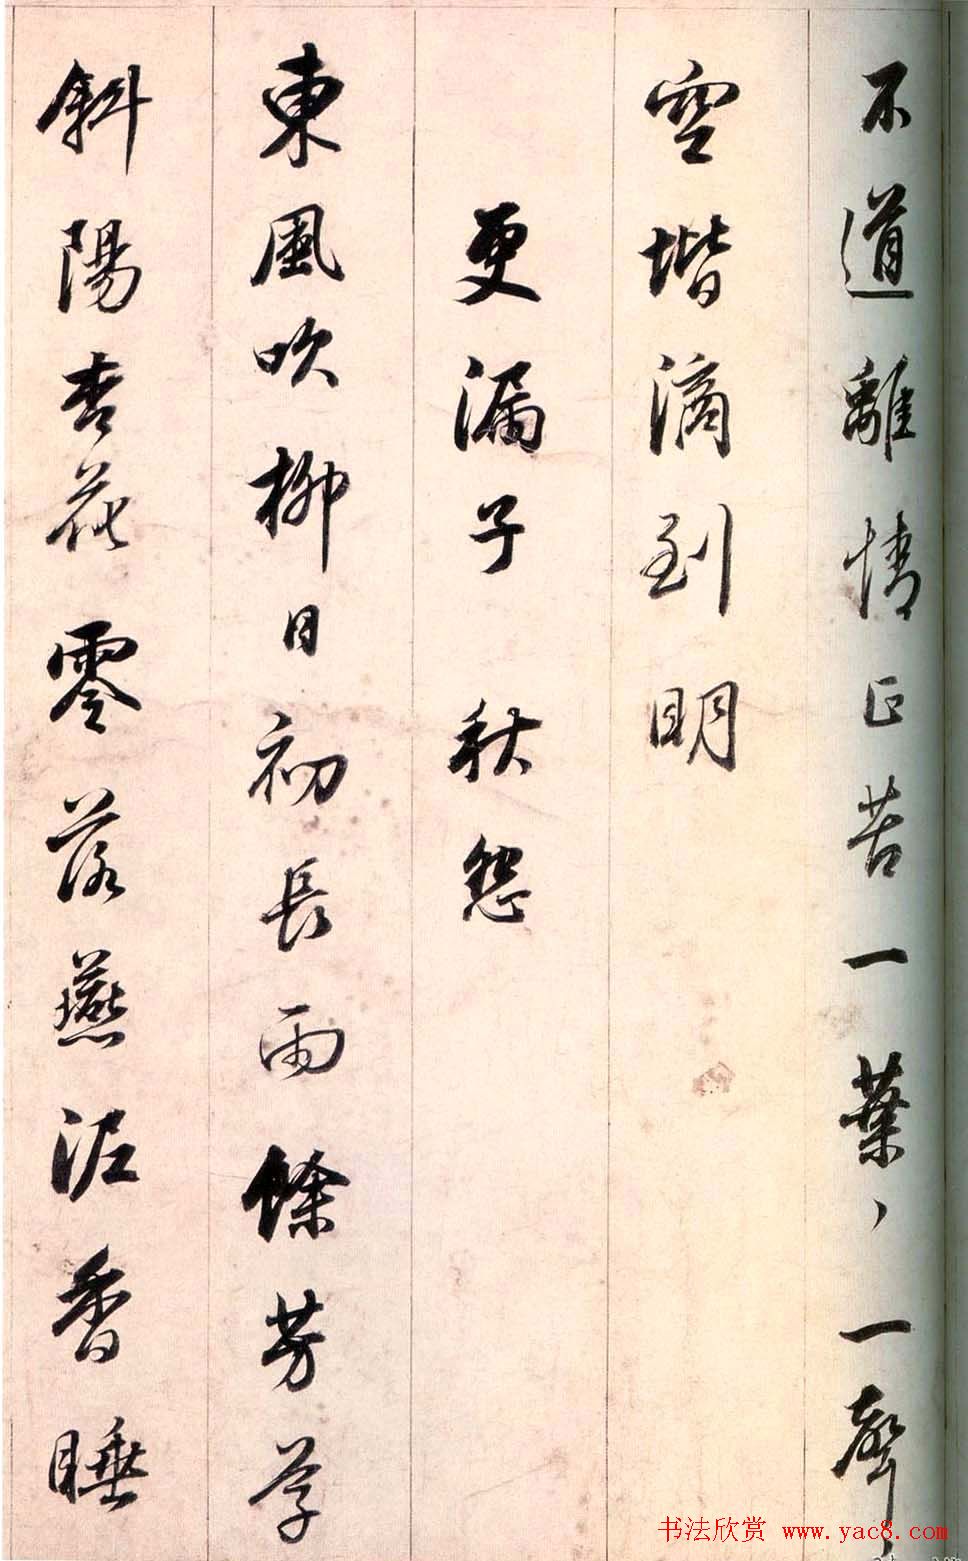 不道離情正苦一葉、一聲、
空堦滴到明
更漏子 秋怨
東風吹柳日初長雨餘芳草
斜陽杏花零落燕泥香睡
书法欣赏 www.yac8.com